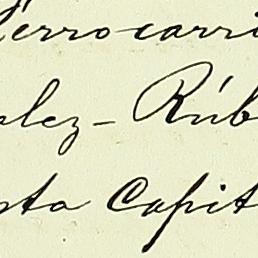 Ferrocarri
alez - Rúb
sta Capit